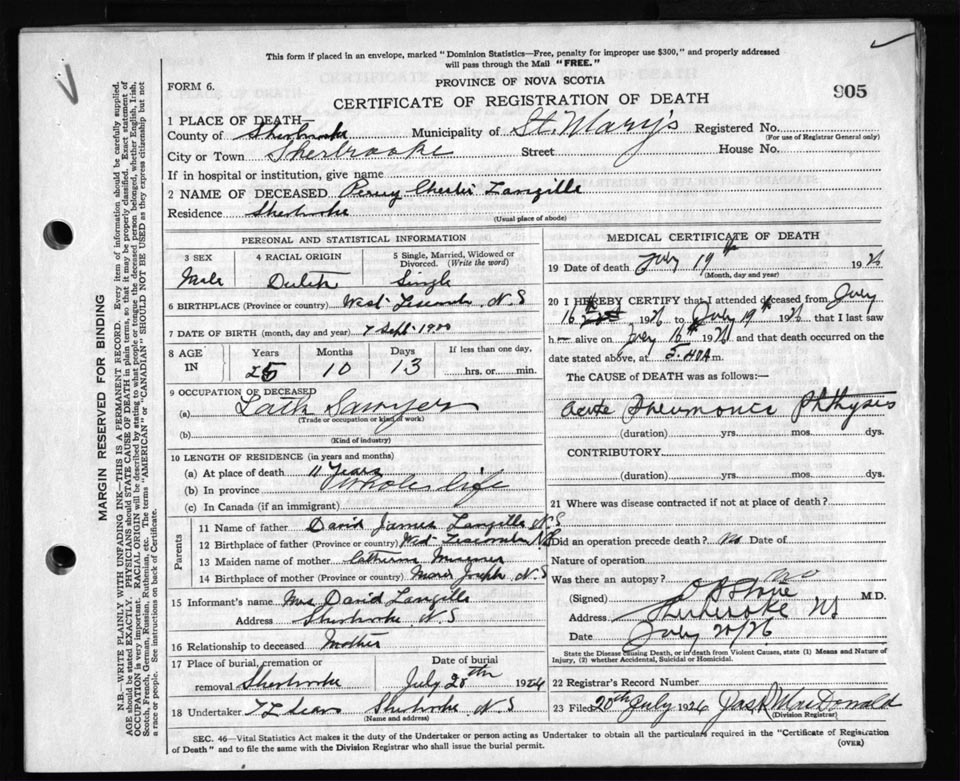 This form if placed in an envelope, marked "Dominion Statistics—Free, penalty for improper use $300," and properly addressed
will pass through the Mail "FREE."
PROVINCE OF NOVA SCOTIA
FORM 6.
CERTIFICATE OF REGISTRATION OF DEATH
905
1 PLACE OF DEATH—
County of Sherbrooke Municipality of St. Mary's Registered No.
(For use of Registrar General only)
City or Town Sherbrooke Street House No.
If in hospital or institution, give name
2 NAME OF DECEASED Perry Langille
Residence Sherbrooke
(Usual place of abode)
PERSONAL AND STATISTICAL INFORMATION
3 SEX 4 RACIAL ORIGIN 5 Single, Married, Widowed or Divorced. (Write the word)
Male Dutch Single
6 BIRTHPLACE (Province or country) West Liscomb, N.S
7 DATE OF BIRTH (month, day and year) 7 Sept. 1900
8 AGE IN Years Months Days If less than one day,
25 10 13 hrs. or min.
9 OCCUPATION OF DECEASED
(a) Lath Sawyer
(Trade or occupation or kind of work)
(b)
(Kind of industry)
10 LENGTH OF RESIDENCE (in years and months)
(a) At place of death 11 Years
(b) In province Whole life
(c) In Canada (if an immigrant)
Parents
11 Name of father David James Langille N.S.
12 Birthplace of father (Province or country) West Liscomb N.S
13 Maiden name of mother Catherine
14 Birthplace of mother (Province or country) Marie Joseph N.S
15 Informant's name Mrs David Langille
Address Sherbrooke N.S
16 Relationship to deceased Mother
17 Place of burial, cremation or removal Sherbrooke Date of burial July 20th 1926
18 Undertaker Sherbrooke N.S
(Name and address)
MEDICAL CERTIFICATE OF DEATH
19 Date of death July 19th 1926
(Month, day and year)
20 I HEREBY CERTIFY that I attended deceased from July
16th 1926 to July 19th 1926 that I last saw
h— alive on July 16th 1926 and that death occurred on the
date stated above, at 5.40 A m.
The CAUSE of DEATH was as follows:—
Acute Pneumonic Phthysis
(duration) yrs. mos. dys.
CONTRIBUTORY
(duration) yrs. mos. dys.
21 Where was disease contracted if not at place of death?
Did an operation precede death? No Date of
Nature of operation
Was there an autopsy? no
(Signed) M.D.
Address Sherbrooke NS
Date July 20/26
State the Disease Causing Death, or in death from Violent Causes, state (1) Means and Nature of
Injury, (2) whether Accidental, Suicidal or Homicidal.
22 Registrar's Record Number
23 Filed 20th July 1926 Jas. MacDonald
(Division Registrar)
SEC. 46—Vital Statistics Act makes it the duty of the Undertaker or person acting as Undertaker to obtain all the particulars required in the "Certificate of Registration
of Death" and to file the same with the Division Registrar who shall issue the burial permit.
(OVER)
MARGIN RESERVED FOR BINDING
N.B.—WRITE PLAINLY WITH UNFADING INK—THIS IS A PERMANENT RECORD. Every item of information should be carefully supplied.
AGE should be stated EXACTLY. PHYSICIANS should STATE CAUSE OF DEATH in plain terms, so that it may be properly classified. Exact statement of
OCCUPATION is very important. RACIAL ORIGIN will be described by stating to what people or tongue the deceased person belonged, whether English, Irish,
Scotch, French, German, Russian, Ruthenian, etc. The terms "AMERICAN" or "CANADIAN" SHOULD NOT BE USED as they express citizenship but not
a race or people. See instructions on back of Certificate.